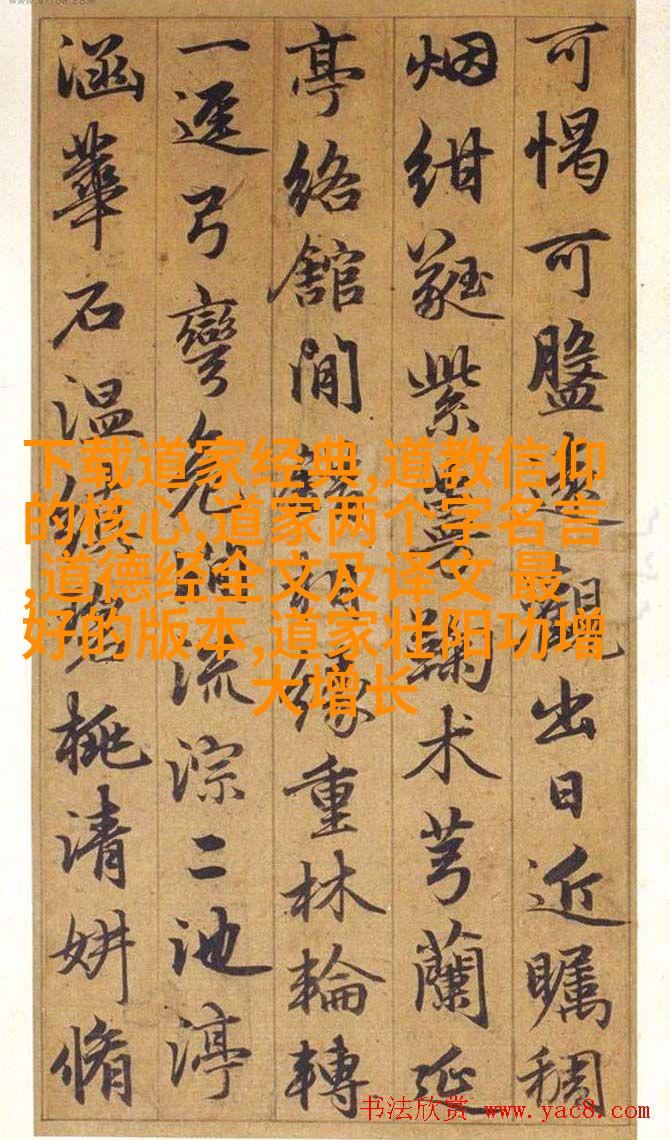 可愒可盤遠觀出日近矚稠
烟紺蕤紫萼鞠术芎蘭延
亭络館閒緣重林輪轉
一逕弓彎流淙二池渟
涵華石温桃清妍脩
下载道家经典,道教信仰
的核心,道家两个字名言
,道德经全文及译文 最
好的版本,道家壮阳功增
大增长
书法欣赏 www.yac8.com